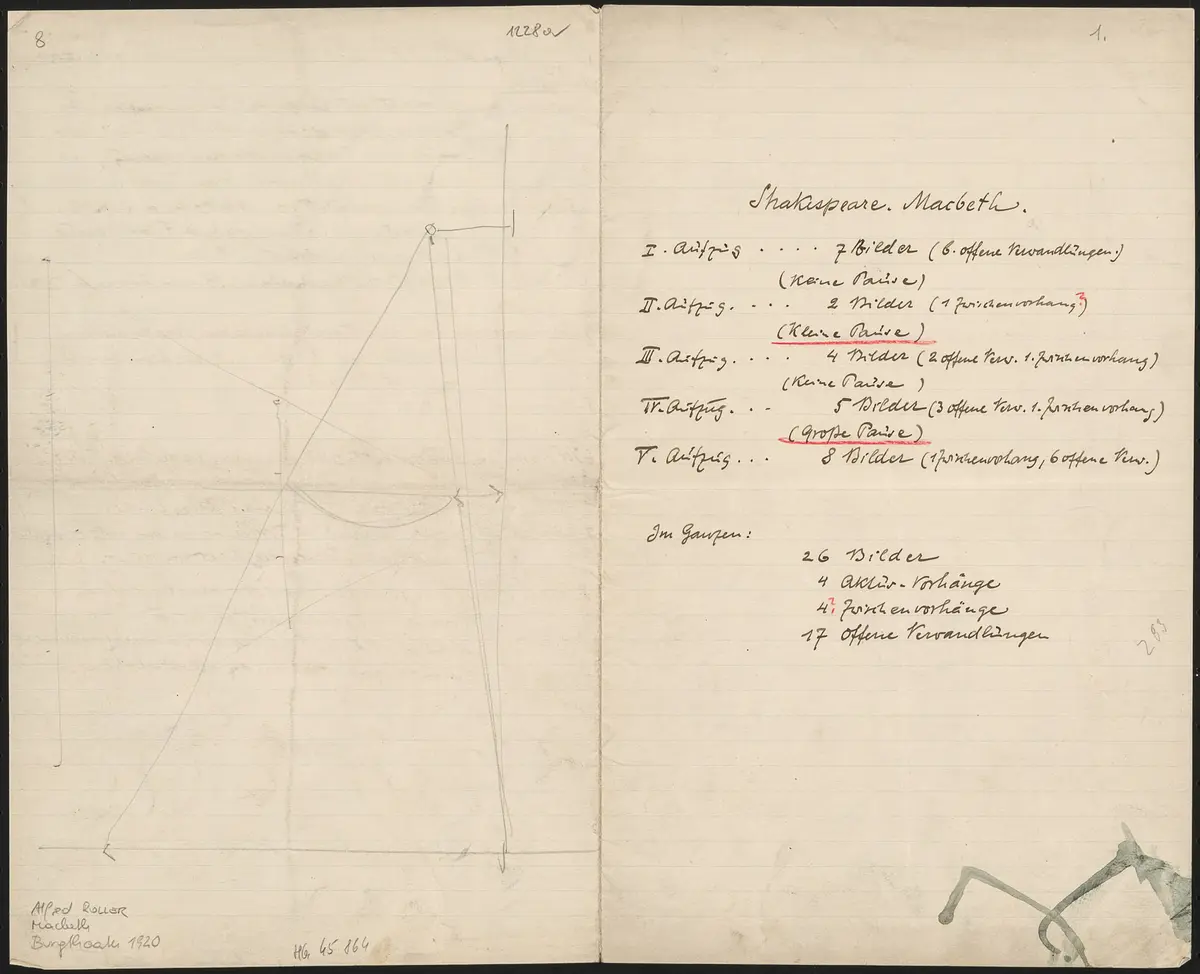 8
1228a
Alfred Roller
Macbeth
Burgtheater 1920
HG 45 864
1.
Shakespeare. Macbeth.
I. Aufzug . . . . 7 Bilder (6. offene Verwandlungen.)
(Keine Pause)
II. Aufzug. . . . 2 Bilder (1 Zwischenvorhang?)
(Kleine Pause)
III. Aufzug. . . . . 4 Bilder (2 offene Verw. 1. Zwischenvorhang)
(Keine Pause)
IV. Aufzug. . . 5 Bilder (3 offene Verw. 1. Zwischenvorhang)
(Große Pause)
V. Aufzug. . . 8 Bilder (1 Zwischenvorhang, 6 offene Verw.)
Im Ganzen:
26 Bilder
4 Aktus-Vorhänge
4? Zwischenvorhänge
17 offene Verwandlungen
283